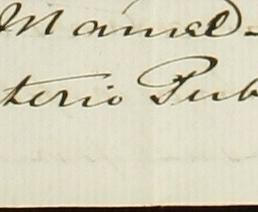 Manuel
terio Pub